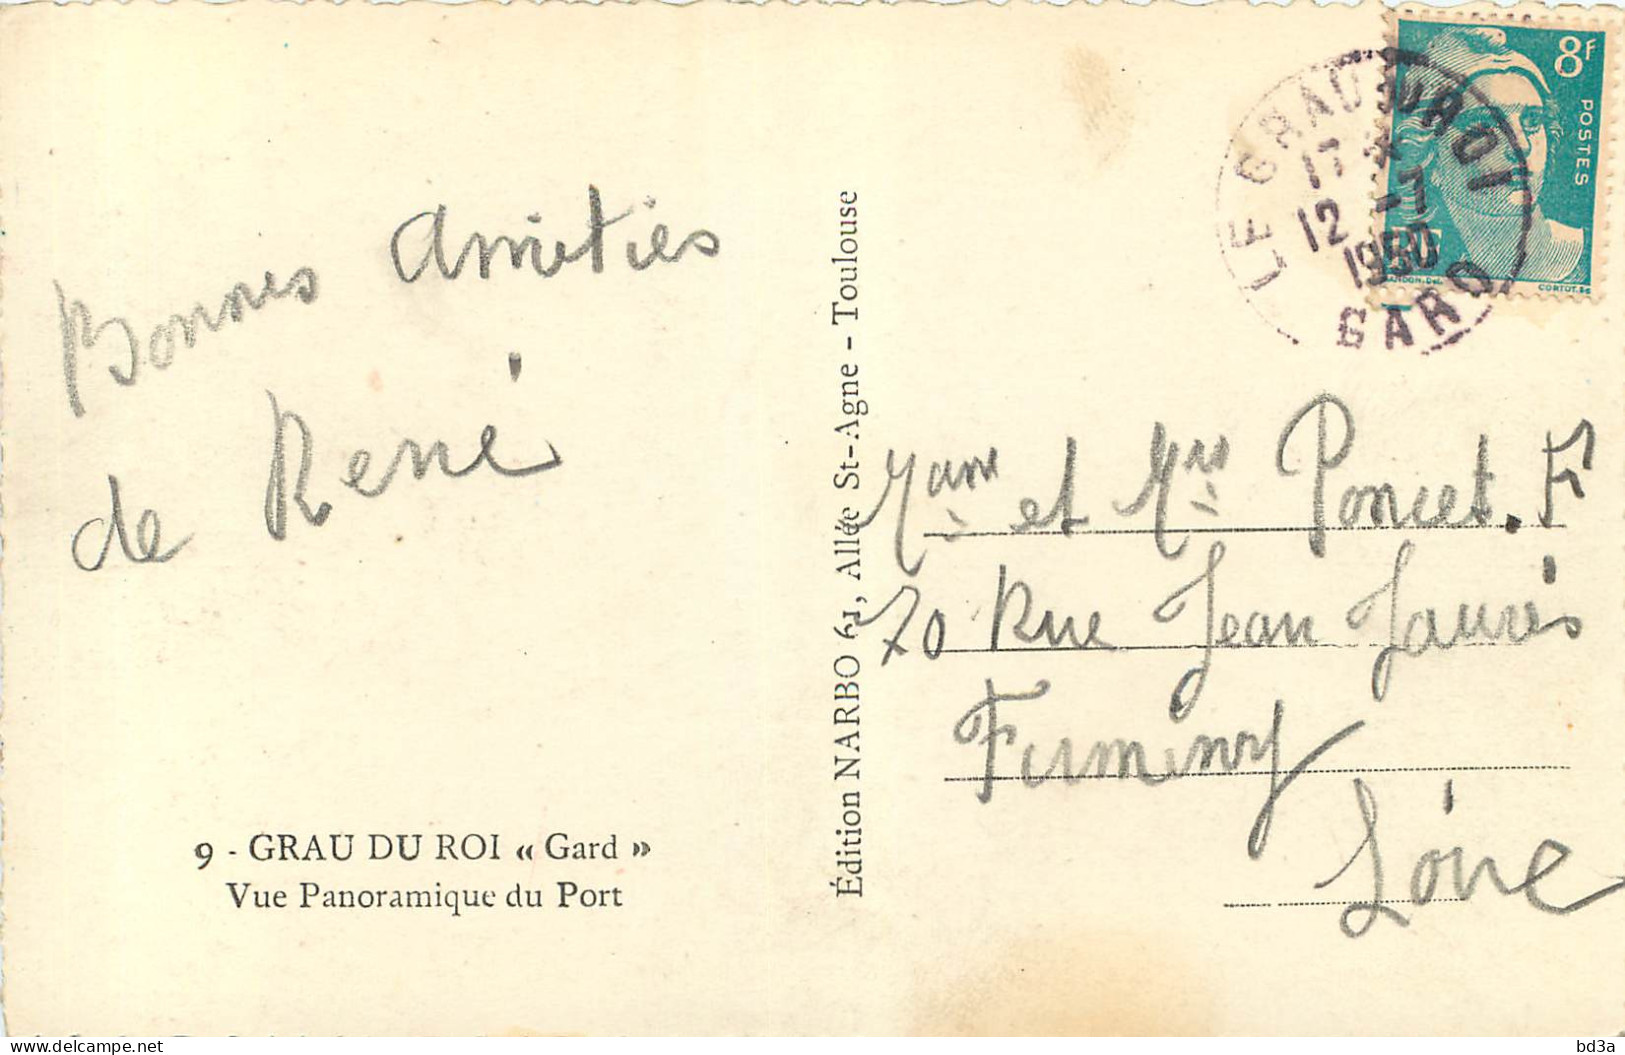 Bonnes amitiés
de René
9 - GRAU DU ROI « Gard »
Vue Panoramique du Port
Édition NARBO 61, Allée St-Agne - Toulouse
8F
POSTES
CORTOT.Sc
LE GRAU DU ROI
12 -7
1950
GARD
Mame et Mrs Poncet. F
70 Rue Jean Jaurès
Firminy
Loire
delcampe.net
bd3a